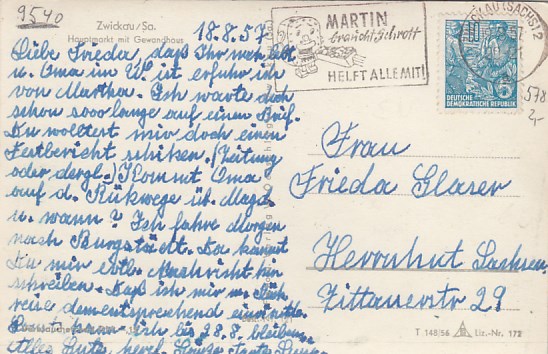 9540
Zwickau/Sa.
Hauptmarkt mit Gewandhaus
18.8.57
Liebe Frieda, daß Ihr
u. Oma im U. ist erfuhr ich
von Martha. Ich warte doch
schon sooo lange auf einen Brief.
Du wolltest mir doch einen
Festbericht schiken. (Zeitung
oder dergl.) Kommt Oma
auf d. Rükwege üb. Magd.
u. wann? Ich fahre morgen
nach Burgstädt. Da kannst
Du mir evtl. Nachricht hin
schreiben. Daß ich mir m. Rück
reise dementsprechend einrichte.
kann ich bis 28.8. bleiben.
alles Gute, herzl. Grüße
MARTIN
braucht Schrott
HELFT ALLE MIT!
ZWICKAU (SACHS) 2
DEUTSCHE
DEMOKRATISCHE REPUBLIK
5
578
2,-
Frau
Frieda Glaser
Herrnhut Sachsen
Zittauerstr 29
T 148/56
Liz.-Nr. 172